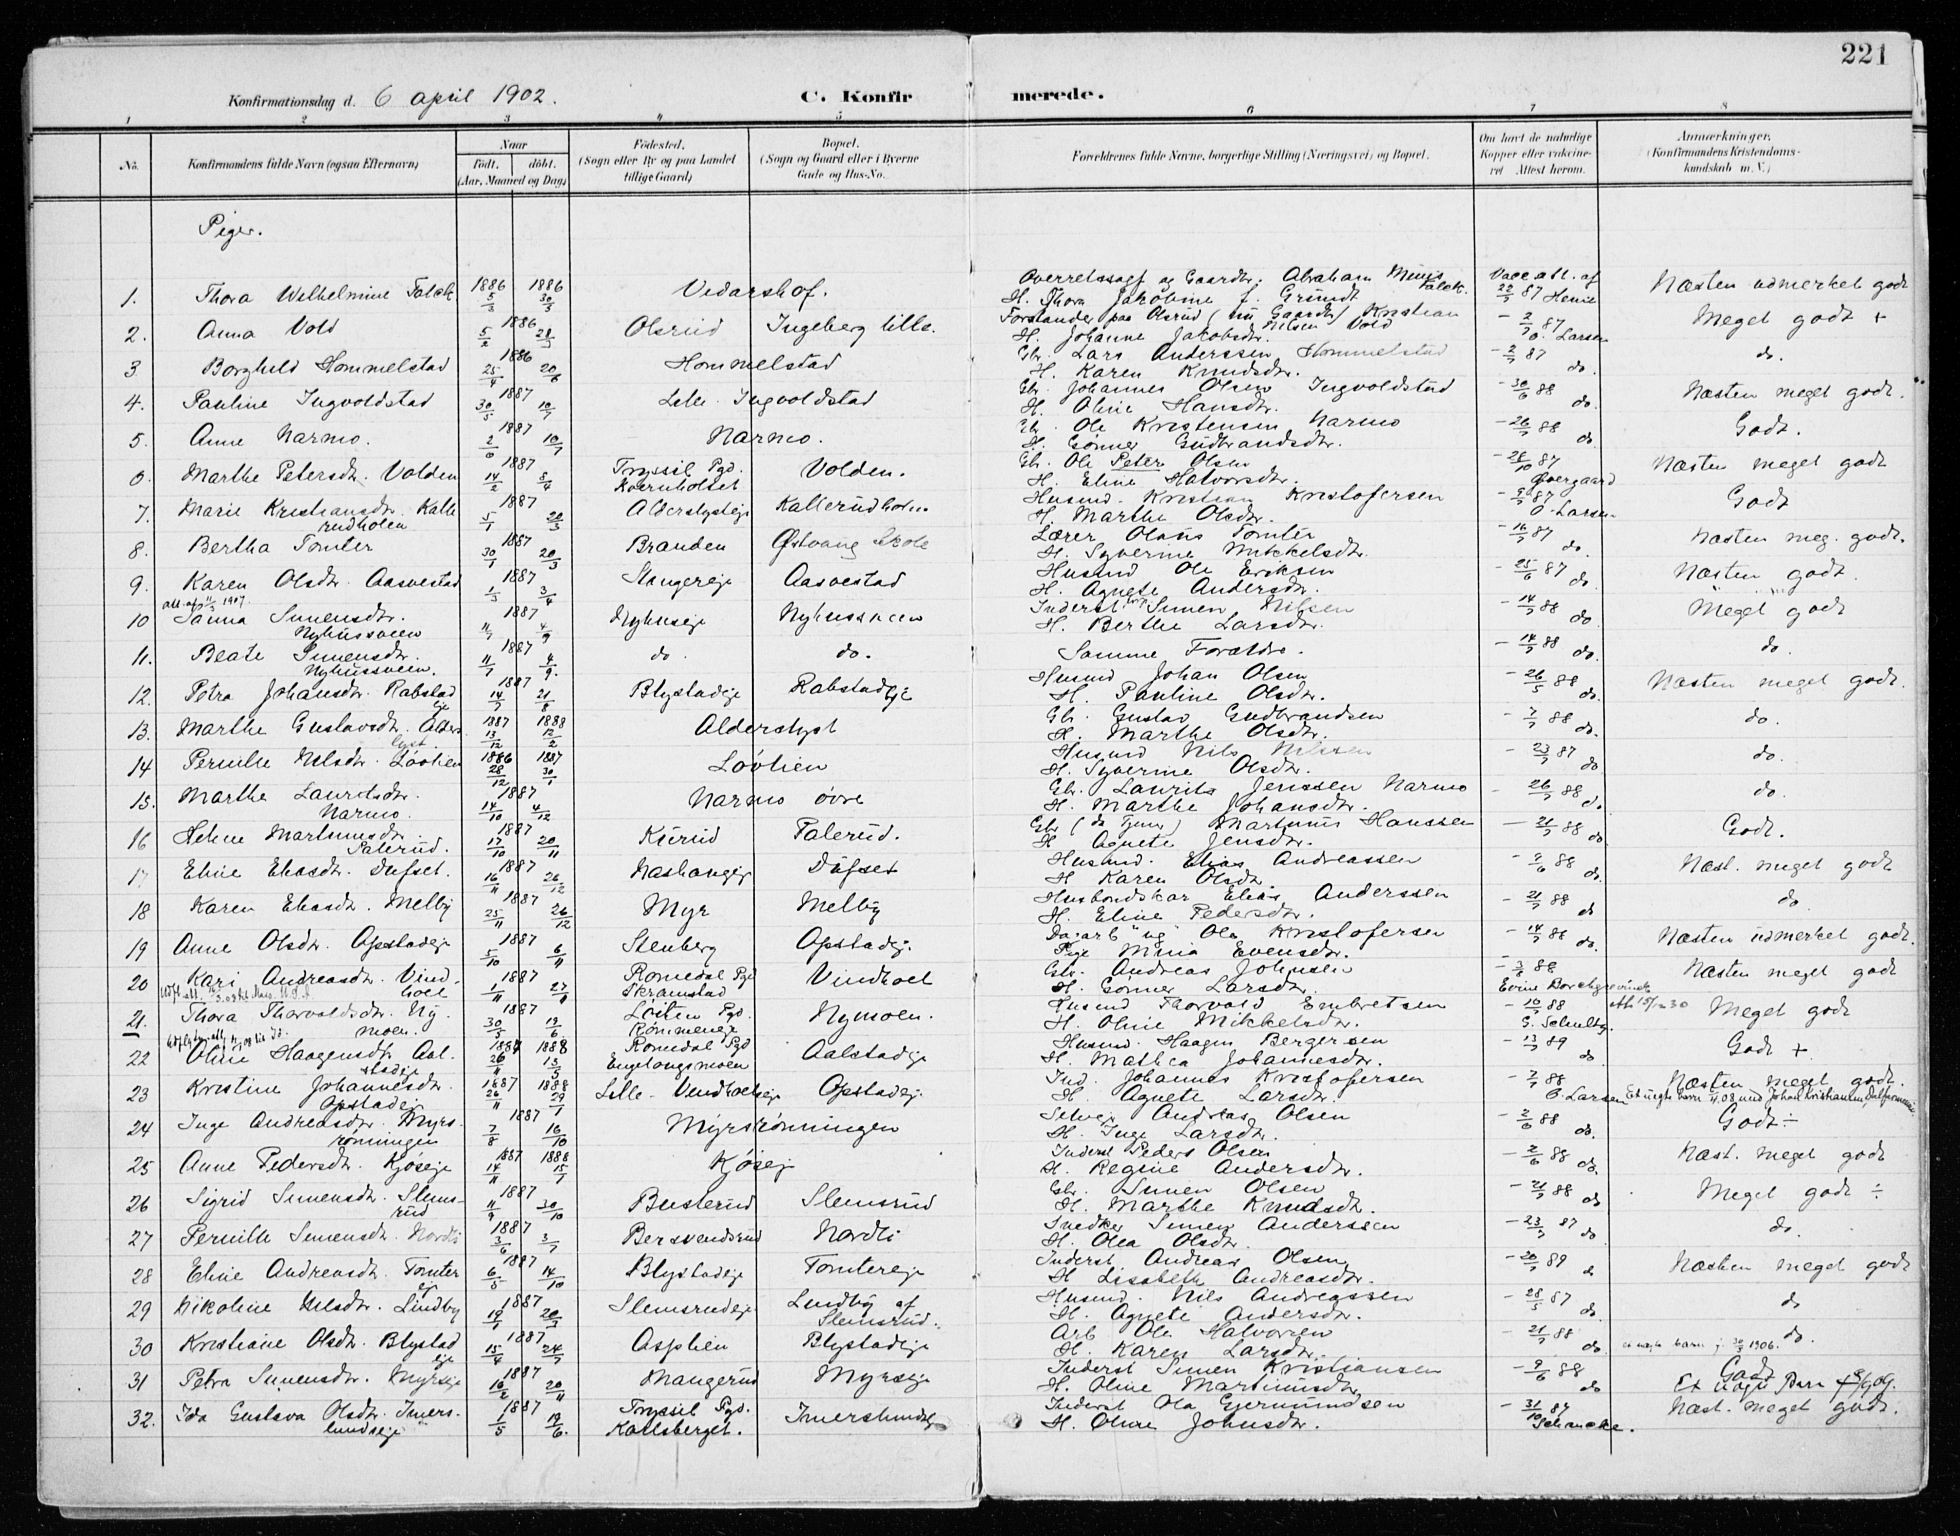 221
Konfirmationsdag d. 6 april 1902. C. Konfirmerede.
1 2 3 4 5 6 7 8
No. Konfirmandens fulde Navn (ogsaa Efternavn) Naar født, døbt, (Aar, Maaned og Dag) Födested, (Sogn eller By og paa Landet tillige Gaard) Bopæl. (Sogn og Gaard eller i Byerne Gade og Hus-No. Forældrenes fulde Navne, borgerlige Stilling (Næringsvei) og Bopæl. Om havt de naturlige Kopper eller vakcineret Attest herom. Anmærkninger, (Konfirmandens Kristendomskundskab m. V.)
Piger.
1. Thora Wilhelmine Falck 1886 5/3 1886 30/3 Vidarshof. Overretssagf og Gaardbr. Abraham Falck. H. Thora Jakobine f. Grundt Vacc. att. af 22/7 87 Næsten udmerket godt
2. Anna Vold 1886 5/2 28/3 Olsrud Ingeberg lille. Forstander paa Olsrud (nu Gaardbr) Kristian Nilsen Vold H. Johanne Jakobsdtr. - 2/7 87 O. Larsen Meget godt +
3. Borghild Hommelstad 1886 25/4 20/6 Hommelstad Gbr. Lars Anderssen Hommelstad H. Karen Knudsdtr. - 2/7 87 do. do.
4. Pauline Ingvoldstad 1887 30/5 10/7 Lille Ingvoldstad Gbr. Johannes Olsen Ingvoldstad H. Oline Hansdtr. - 30/6 88 do. Næsten meget godt.
5. Anne Narmo. 1887 2/6 10/7 Narmo. Gbr. Ole Kristensen Narmo H. Gønner Gudbrandsdtr. - 26/7 88 do Godt.
6. Marthe Petersdtr. Volden 1887 14/2 8/4 Tryssil Pgd. Kvernholset Volden. Gbr. Ole Peter Olsen H. Eline Halvorsdtr. - 28/10 87 Øvergaard Næsten meget godt
7. Marie Kristiansdtr. Kallerudholen 1887 5/1 20/3 Alderslysteje Kallerudholen Husmd. Kristian Kristofersen H. Marthe Olsdtr. 87 O. Larsen Godt
8. Bertha Tomter 1887 30/1 20/3 Branden Østvang Skole Lærer Olaus Tomter H. Syverine Mikkelsdtr. - 16/7 87 do. Næsten meg. godt.
9. Karen Olsdtr. Aasvestad 1887 1/3 3/4 Stangereje Aasvestad Husmd Ole Eriksen H. Agnete Andersdtr. - 25/6 87 do Næsten godt.
att. af 11/3 1907.
10 Sanna Simensdtr. Nyhussveen 1887 11/7 4/9 Nyhuseje Nyhussveen Inderst Simen Nilsen H. Berthe Larsdtr. - 14/7 88 do Meget godt
11. Beate Simensdtr. Nyhussveen. 1887 11/7 4/9. do. do. Samme Forældre. - 14/7 88 do. do.
12. Petra Johansdtr. Rabstadeje 1887 14/7 21/8 Blystadeje Rabstadeje Husmd Johan Olsen H. Pauline Olsdtr. - 26/5 88 do. Næsten meget godt.
13. Marthe Gustavsdtr. Alderslyst 1887 13/12 1888 12/2 Alderslyst Gbr. Gustav Gudbrandsen H. Marthe Olsdtr. - 7/7 88 do. do.
14 Pernille Nilsdtr. Løvlien 1886 28/12 1887 30/1 Løvlien Husmd Nils Nilssen H. Syverine Olsdtr. - 23/7 87 do do.
15. Marthe Lauritsdtr. Narmo. 1887 14/10 4/12 Narmo øvre Gbr. Laurits Jenssen Narmo H. Marthe Johansdtr. - 26/7 88 do. do.
16 Helene Martinusdtr. Palerud. 1887 17/10 20/11 Kjirud Palerud. Gbr (do tjener) Martinus Hanssen H Agnete Jensdtr. - 21/7 88 do Godt.
17 Eline Eliasdtr. Dufset. 1887 16/11 26/12 Nashangeje Dufset Husmd. Elias Andreassen H Karen Olsdtr 88 do. Næst. meget godt
18 Karen Eliasdtr. Melby 1887 25/11 26/12 Myr Melby Husbondskar Elias Anderssen H. Eline Pedersdtr. - 21/7 88 do do.
19 Anne Olsdtr. Opstadeje 1887 5/10 6/11 Stenberg Opstadeje. Dagarb ug Ole Kristofersen Pige Mina Evensdtr. - 14/7 88 do. Næsten udmerket godt.
20 Kari Andreasdtr. Vindhoel 1887 1/11 27/11 Romedal Pgd Skramstad Vindhoel Gbr. Andreas Johnsen H. Gønner Larsdtr. 88 Næsten meget godt
21. Thora Thorvaldsdtr. Nymoen. 1887 30/3 19/6 Løiten Pgd. Rømmeneje Nymoen. Husmd Thorvald Embretsen H. Oline Mikkelsdtr. - 10/7 88 G. Schultz. Meget godt
22 Oline Haagensdtr. Aalstadeje 1887 26/11 1888 13/5 Romedal Pgd Engelongsmoen Aalstadeje Husmd. Haagen Bergersen H. Mathea Johannesdtr. - 13/7 89 do Godt +
23 Kristine Johannesdtr. Opstadeje 1887 26/11 1888 29/1 Lille-Vindhoeleje Opstadeje. Ind. Johannes Kristofersen H. Agnete Larsdtr. - 2/7 88 O. Larsen Næsten meget godt. Et uægte barn 08 med Johan Kristiansen
24 Inge Andreasdtr. Myrsrønningen 1887 7/8 16/10 Myrsrønningen Selvej Andreas Olsen H. Inge Larsdtr. - 2/6 88 do. Godt ÷
25 Anne Pedersdtr. Kjøseje 1887 14/11 1888 15/1 Kjøseje Inderst Peders Olsen H. Regine Andersdtr. - 2/6 88 do. Næst. meget godt
26 Sigrid Simensdtr. Slemsrud 1887 11/9 30/10 Busterud Slemsrud Gbr. Simen Olsen H. Marthe Knudsdtr. - 21/7 88 do Meget godt ÷
27 Pernille Simensdtr. Nordli 1887 3/6 3/7 Bersvendsrud Nordli Snedker Simen Anderssen H. Olea Olsdtr. - 23/7 87 do do.
28 Eline Andreasdtr. Tomtereje 1887 6/5 14/10 Blystadeje Tomtereje Inderst. Andreas Olsen H Lisabeth Andreasdtr. - 20/7 89 do Næsten meget godt
29 Nikoline Nilsdtr. Lindby 1887 Slemsrudeje Lindby af Slemsrud. Husmd. Nils Andreassen H. Agnete Andersdtr. - 28/5 87 do do
30 Kristiane Olsdtr. Blystadeje 1887 15/4 24/7 Asphien Blystadeje Arb Ole Halvorsen H. Karen Larsdtr. - 21/7 88 do. do.
31 Petra Simensdtr. Myrseje 1887 16/2 20/11 Mangerud Myrseje Inderst Simen Kristiansen H. Oline Martinusdtr. - 9/6 88 do Godt Et uægte Barn
32. Ida Gustava Olsdtr. Imerslundseje 1887 1/5 19/6. Tryssil Pgd. Karlsberget. Imerslundseje Inderst Ola Gjermundsen H. Oline Johnsdtr. - 31/10 87 Schancke. Næst. meget godt.